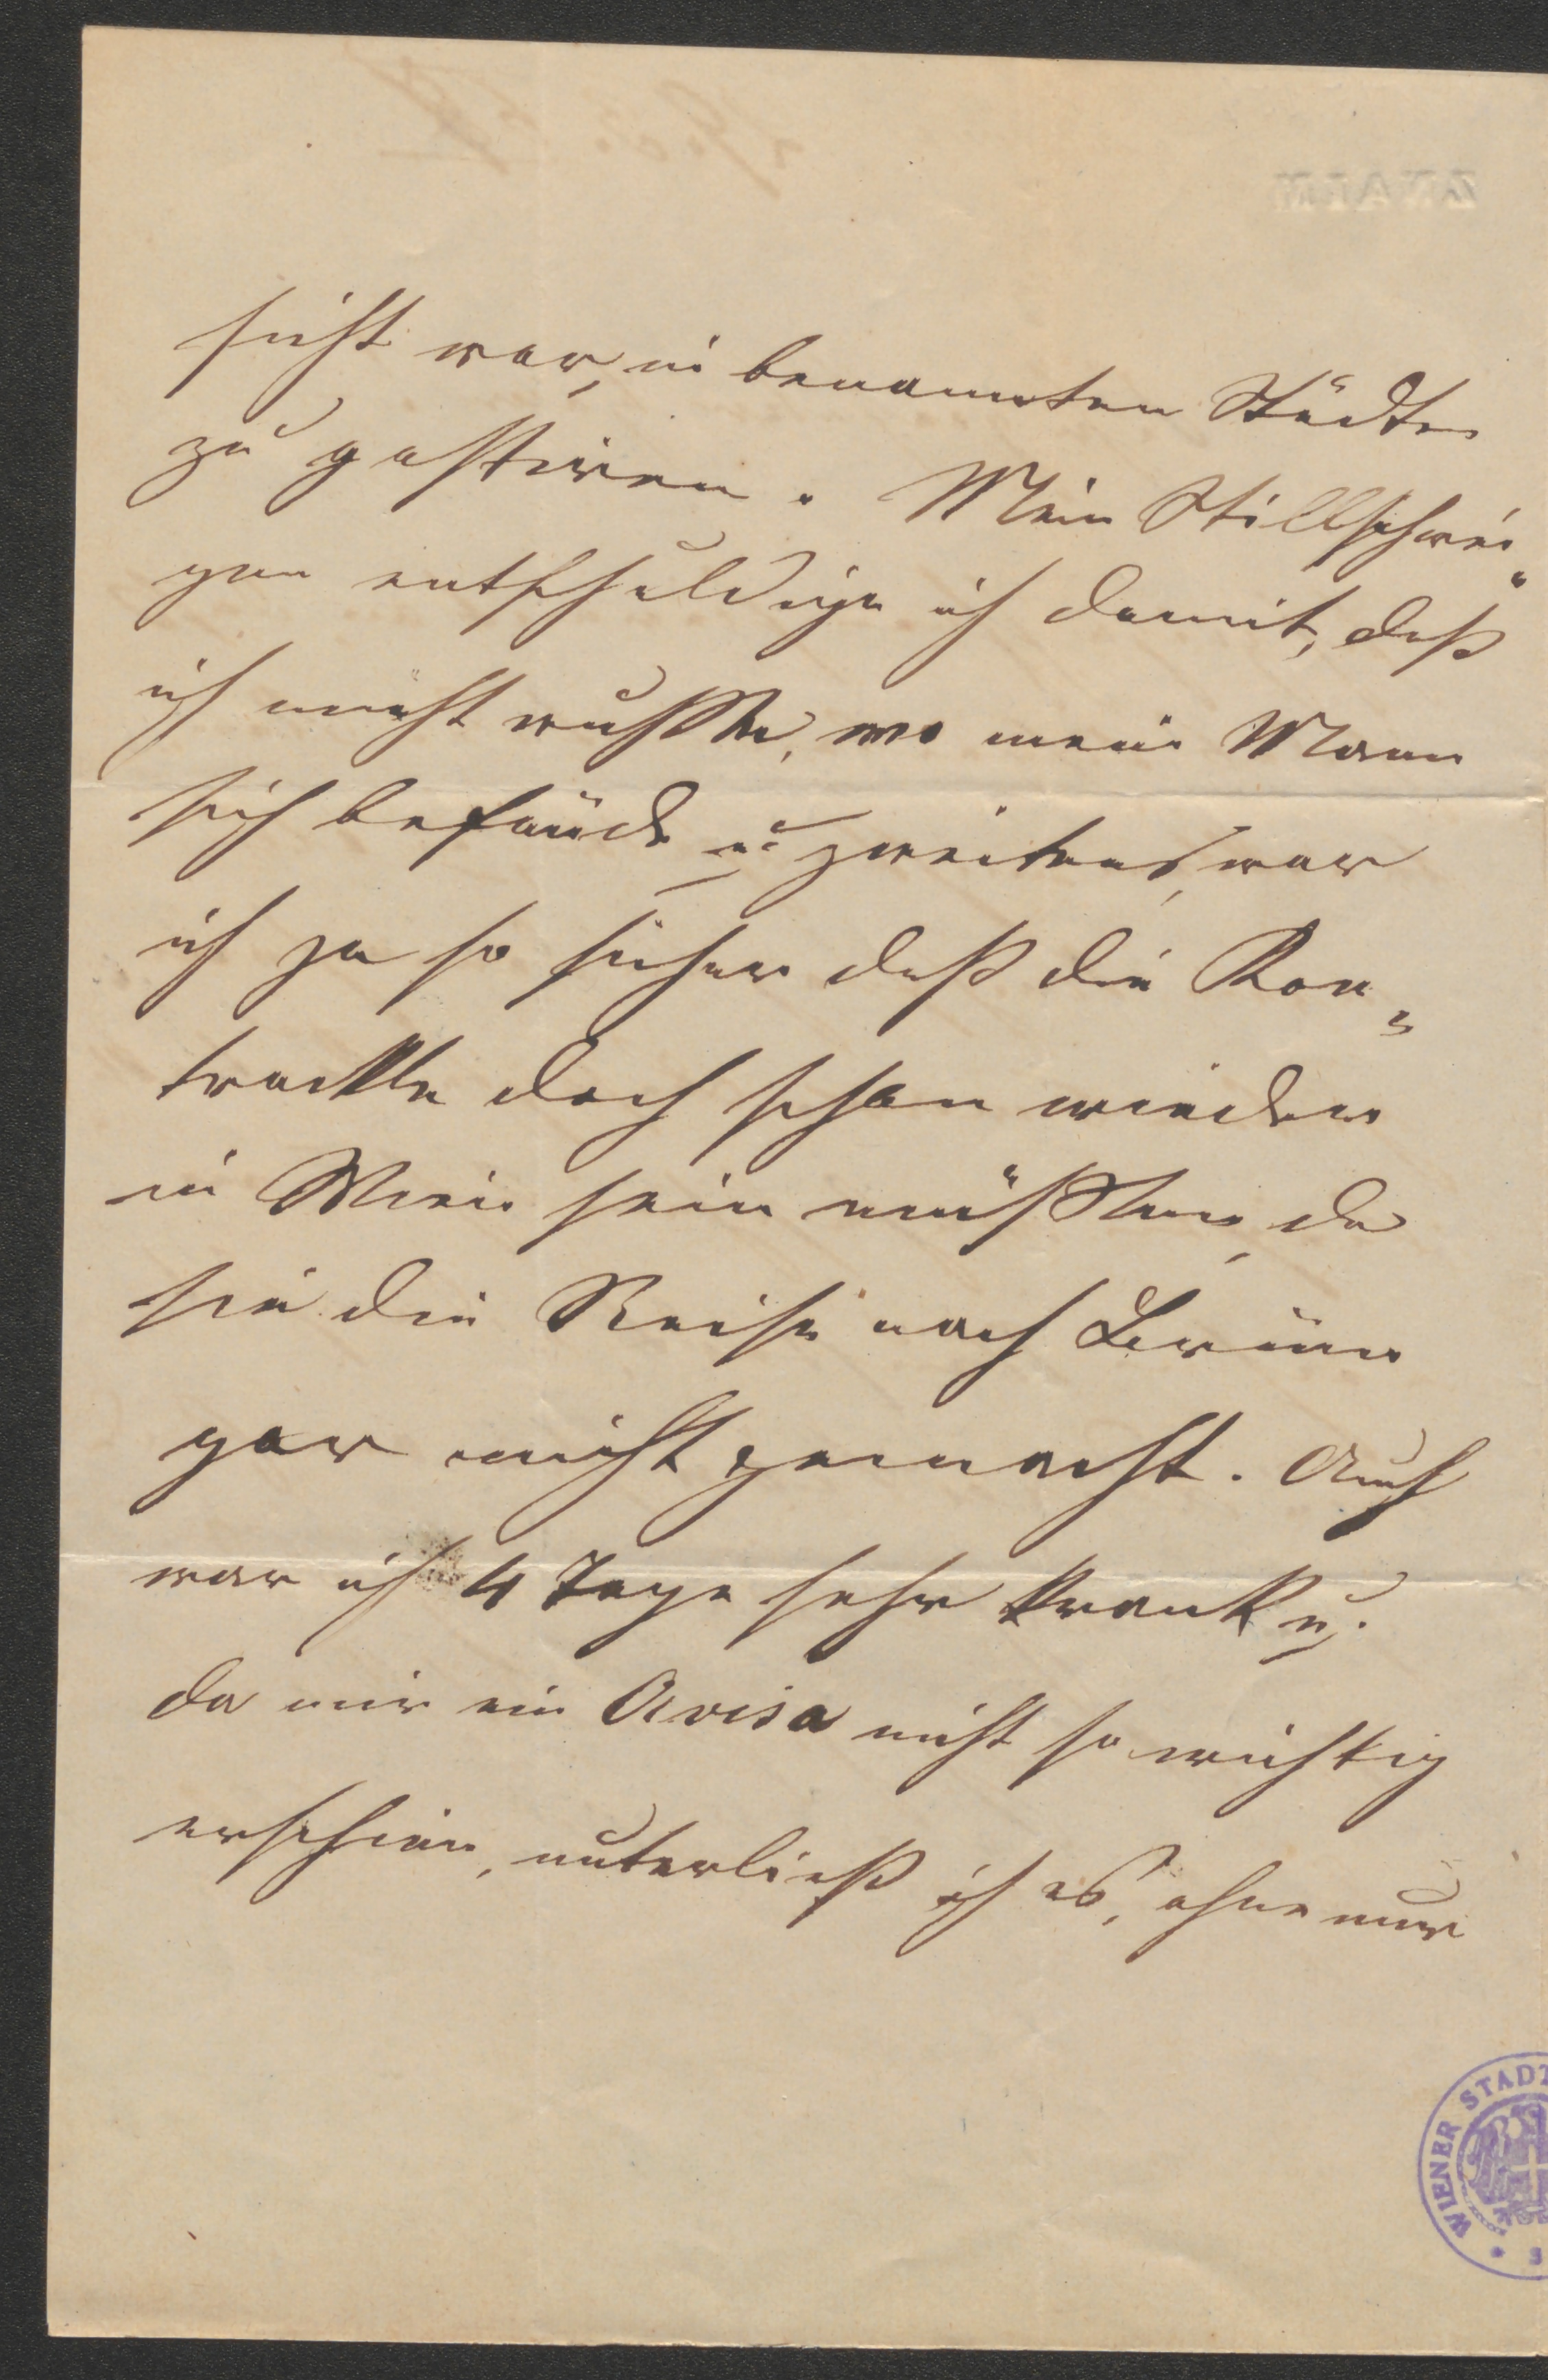 ZNAIM
sicht war, in benannten Städten
zu gastiren. Mein Stillschwei„
gen entschuldige ich damit, daß
ich nicht wußte, wo mein Mann
sich befände u. zweitens, war
ich ja so sicher daß die Kon„
trackte doch schon wieder
in Wien sein müßten, da
sie die Reise nach Brünn
gar nicht gemacht. Auch
war ich 4 Tage sehr krank u.
da mir ein Aviso nicht so wichtig
erschien, unterließ ich es, ohne nur
WIENER STADT